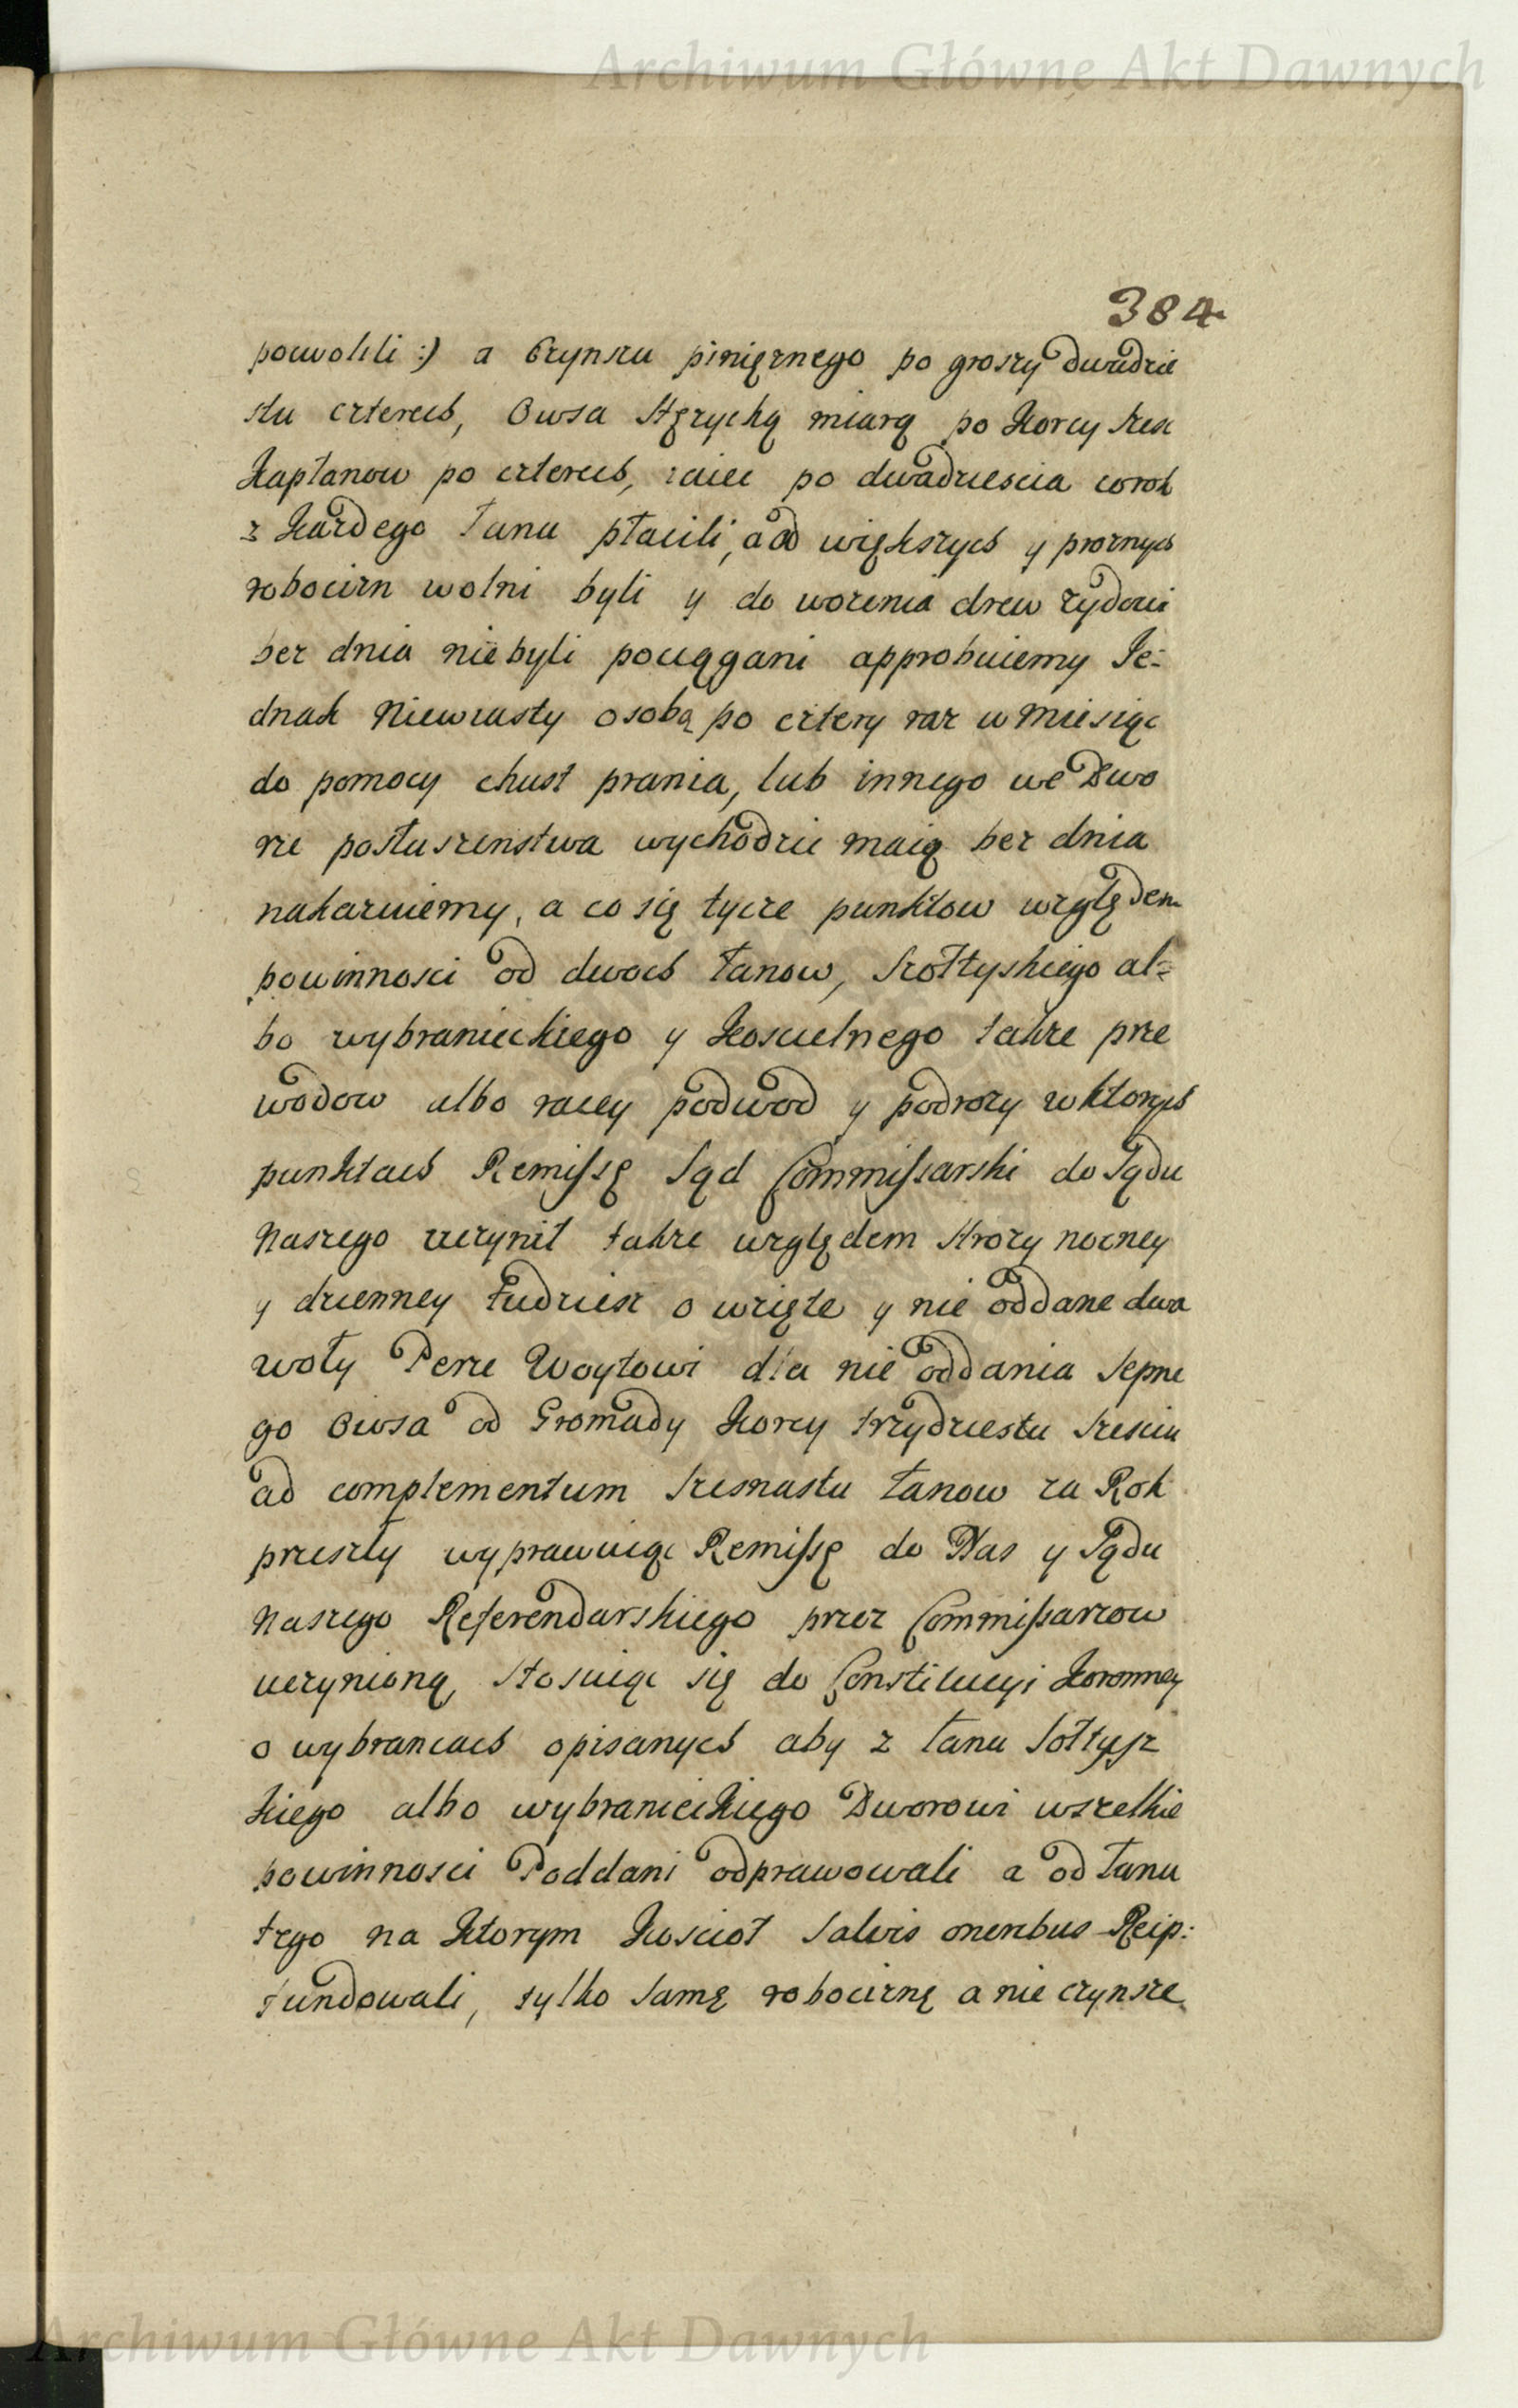 Archiwum Główne Akt Dawnych
384
powolili :) a Czynszu pinięznego po groszy dwadzie
stu czterech, Owsa Stęzycką miarą po Korcy szesc
Kapłanow po czterech, iaiec po dwadziescia corok
z kazdego łanu płacili, a od większych y proznych
robocizn wolni byli y do wozenia drew zydowi
bez dnia niebyli pociągani approbuiemy Je-
dnak Niewiasty osobą po cztery raz w Miesiąc
do pomocy chust prania, lub innego we Dwo
rze posłuszenstwa wychodzic maią bez dnia
nakazuiemy, a co się tycze punktow względem
powinnosci od dwoch łanow, Szołtyskiego al-
bo wybranieckiego y Koscielnego takze prze
wodow albo raczey podwod y podrozy w ktorych
punktach Remissę Sąd Commissarski do Sądu
Naszego uczynił takze względem Strozy nocney
y dzienney tudziesz o wzięte y nie oddane dwa
woły Perze Woytowi dla nie oddania Sepne
go Owsa od Gromady Korcy trzydziestu szesciu
ad complementum szesnastu łanow za Rok
przeszły wyprawuiąc Remissę do Nas y Sądu
Naszego Referendarskiego przez Commissarzow
uczynioną, Stosuiąc się do Constitucyi Koronney
o wybrancach opisanych aby z łanu Sołtysz
kiego albo wybranieckiego Dworowi wszelkie
powinnosci Poddani odprawowali a od łanu
tego na ktorym Koscioł salvis oneribus Reip:
fundowali, tylko samę robociznę a nie czynsze
Archiwum Główne Akt Dawnych